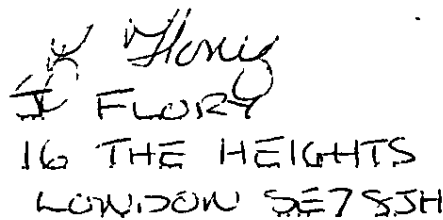 J FLORY
16 THE HEIGHTS
LONDON SE7 8JH